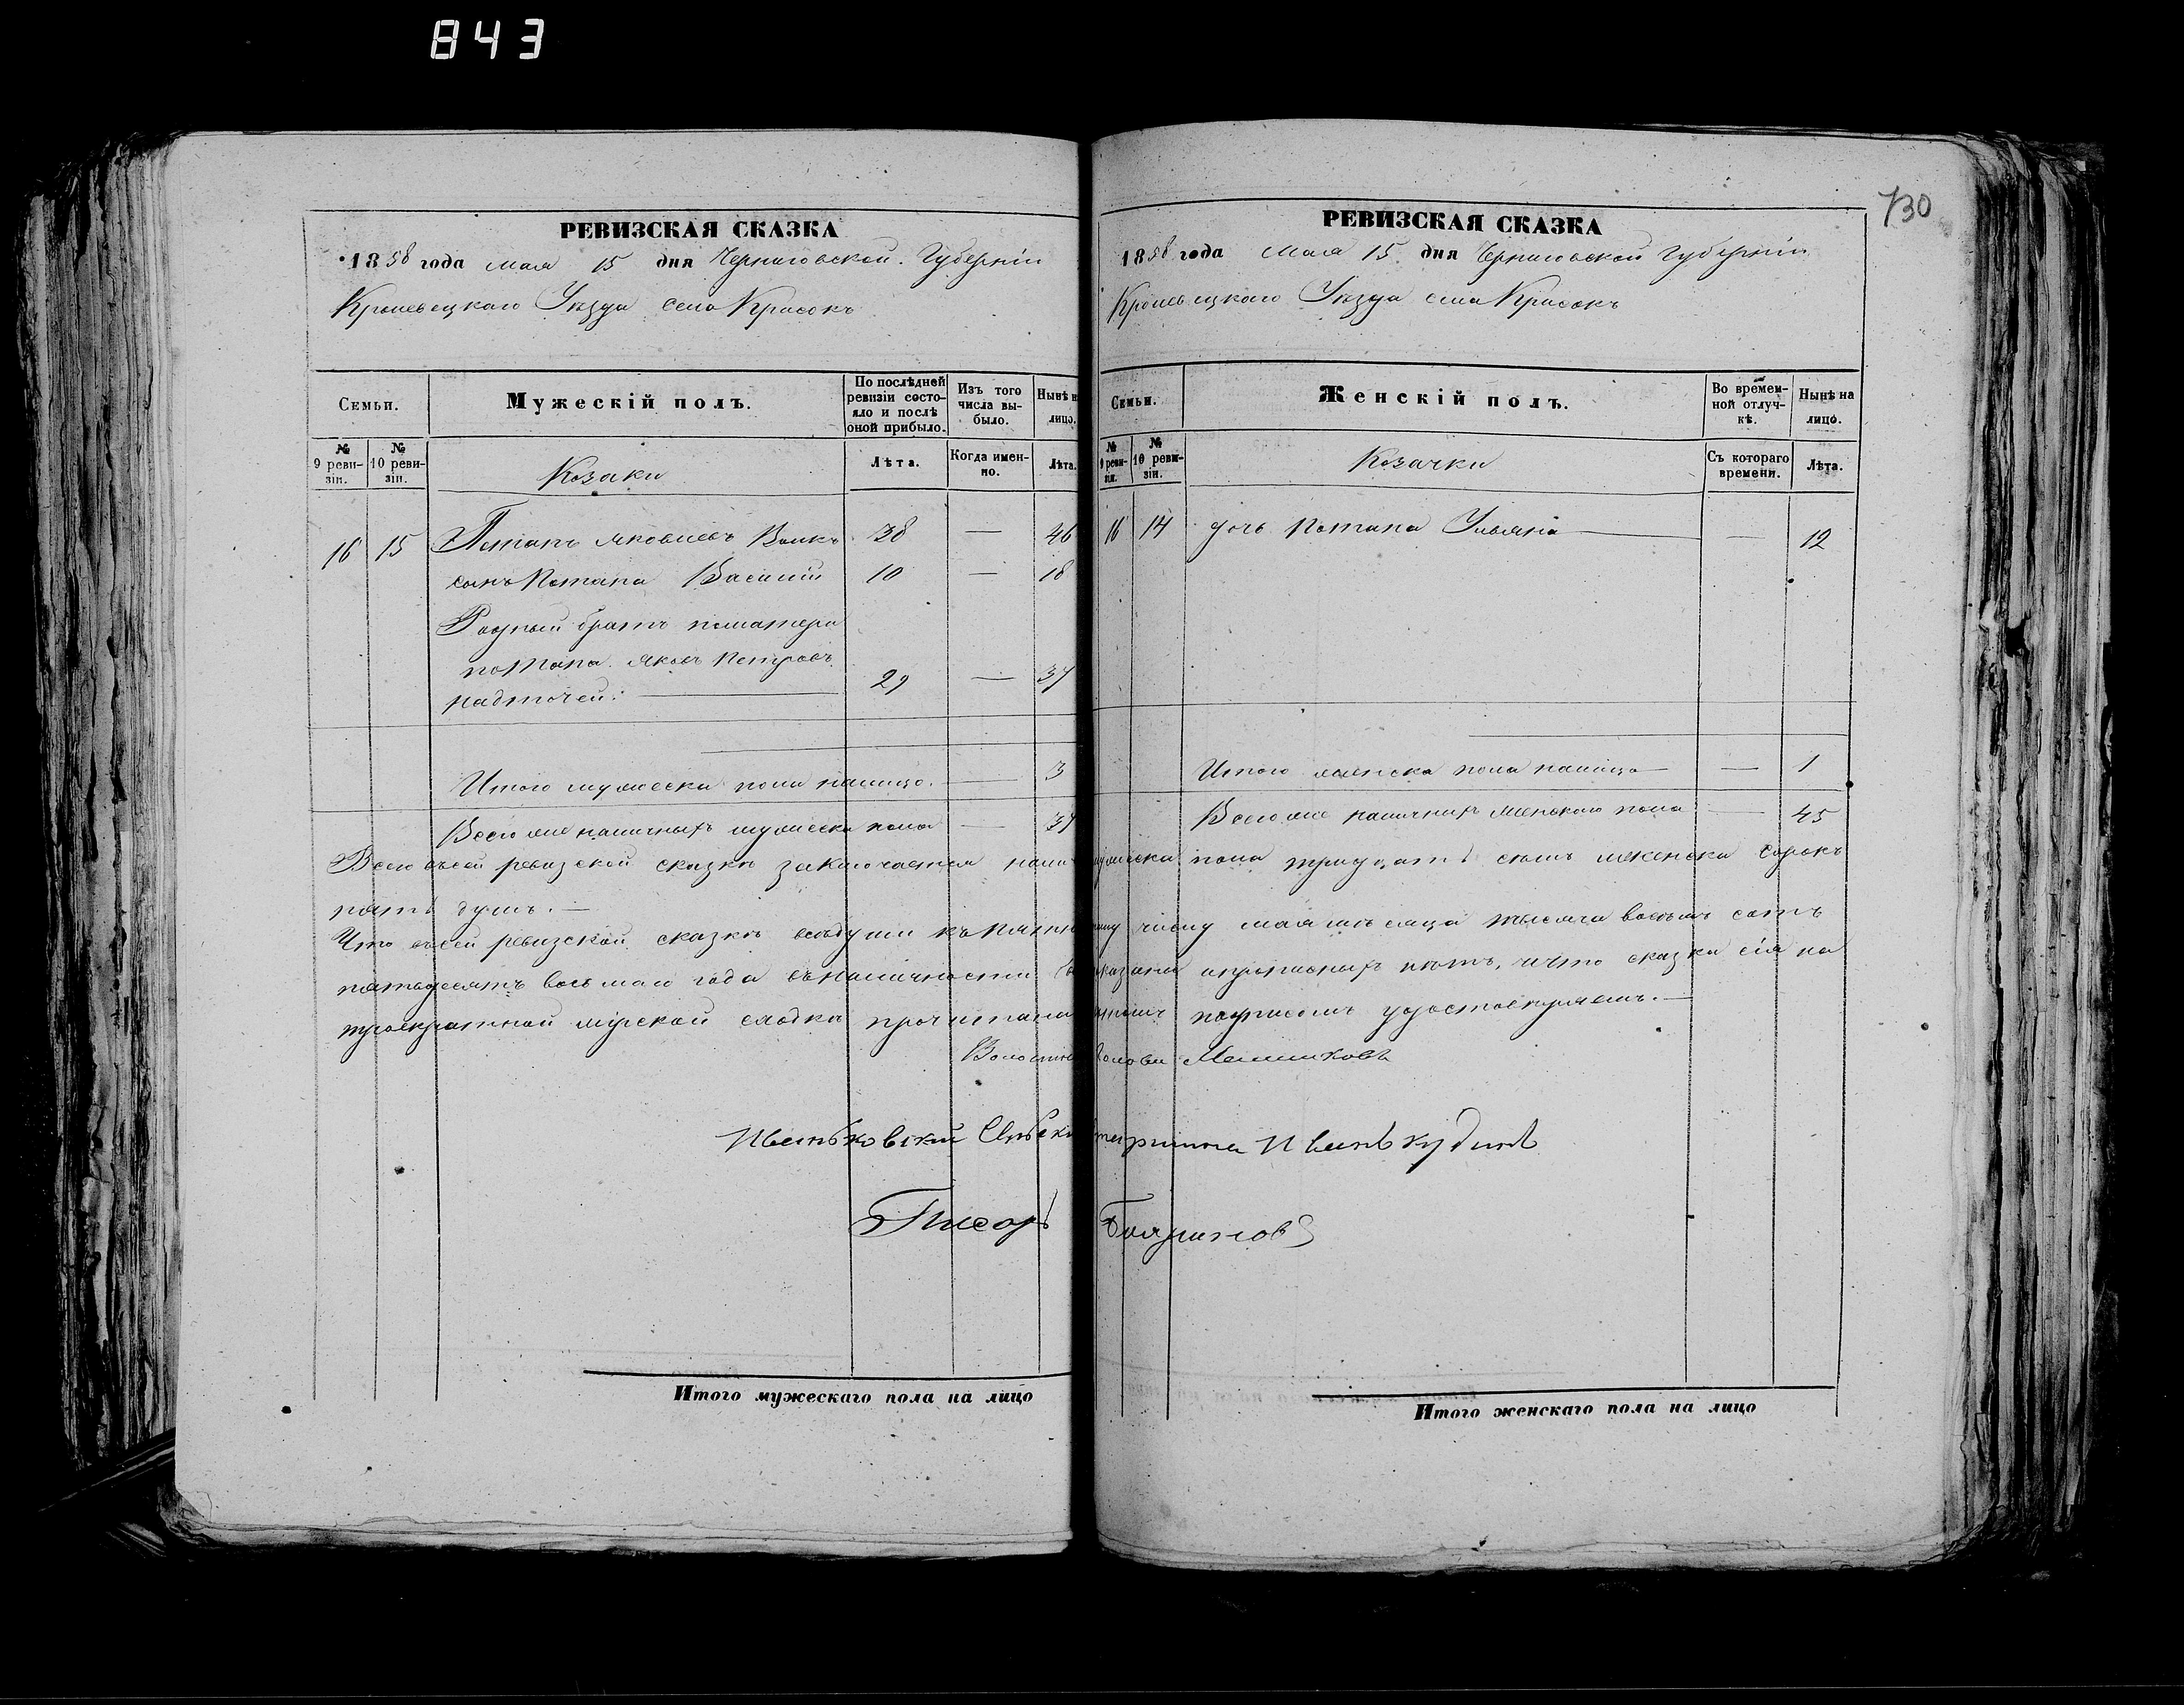 843
730
РЕВИЗСКАЯ СКАЗКА
1858 года мая 15 дня Черниговской Губерніи
Кролевецкаго Уѣзда села Красокъ
Семьи.
Мужескій полъ.
По послѣдней ревизіи состояло и послѣ оной прибыло.
Изъ того числа выбыло.
Нынѣ н
лицо.
№ 9 ревизіи.
№ 10 ревизіи.
Козаки
Лѣта.
Когда именно.
Лѣта.
16 15 Потапъ Яковлевъ Волкъ 38 — 46
сынъ Потапа Василій 10 — 18
Родный братъ поматери
потапа Яковъ Петровъ 29 — 37
Надточей: —
Итого мужеска пола налицо. — 3
Всего же наличныхъ мужеска пола — 37
РЕВИЗСКАЯ СКАЗКА
1858 года мая 15 дня Черниговской Губерніи
Кролевецкаго Уѣзда села Красокъ
Семьи.
Женскій полъ.
Во временной отлучкѣ.
Нынѣ на лицо.
№ 9 ревизіи.
№ 10 ревизіи.
Козачки
Съ котораго времени.
Лѣта.
16 14 дочь Потапа Ульяна — — 12
Итого женска пола налицо — — 1
Всего же наличныхъ женскаго пола — 45
Всего въсей ревизской сказкѣ заключается налич мужеска пола тридцать семь женска сорокъ
пять душъ. —
Что въсей ревизской сказкѣ всѣдуши къ пятн числу мая мѣсяца тысяча восемь сотъ
пятьдесятъ восьмаго года въналичности показаны ипрописныхъ нѣтъ, ичто сказка сія на
троекратной мірской сходкѣ прочитана подписомъ удостовѣряемъ. —
Волостной Голова Мельниковъ
Сельскій старшина Иванъ Кудинъ
Писарь
Итого мужескаго пола на лицо
Итого женскаго пола на лицо